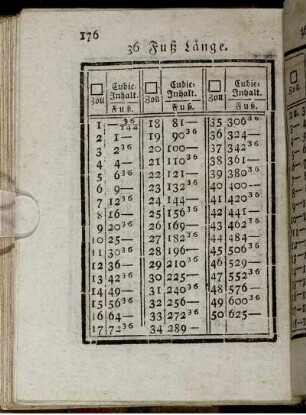 176
36 Fuß Länge.
□ Zoll | Cubic-Inhalt. Fuß. | □ Zoll | Cubic-Inhalt. Fuß. | □ Zoll | Cubic-Inhalt. Fuß.
1 | — 36/144 | 18 | 81 — | 35 | 306 36
2 | 1 — | 19 | 90 36 | 36 | 324 —
3 | 2 36 | 20 | 100 — | 37 | 342 36
4 | 4 — | 21 | 110 36 | 38 | 361 —
5 | 6 36 | 22 | 121 — | 39 | 380 36
6 | 9 — | 23 | 132 36 | 40 | 400 —
7 | 12 36 | 24 | 144 — | 41 | 420 36
8 | 16 — | 25 | 156 36 | 42 | 441 —
9 | 20 36 | 26 | 169 — | 43 | 462 36
10 | 25 — | 27 | 182 36 | 44 | 484 —
11 | 30 36 | 28 | 196 — | 45 | 506 36
12 | 36 — | 29 | 210 36 | 46 | 529 —
13 | 42 36 | 30 | 225 — | 47 | 552 36
14 | 49 — | 31 | 240 36 | 48 | 576 —
15 | 56 36 | 32 | 256 — | 49 | 600 36
16 | 64 — | 33 | 272 36 | 50 | 625 —
17 | 72 36 | 34 | 289 —